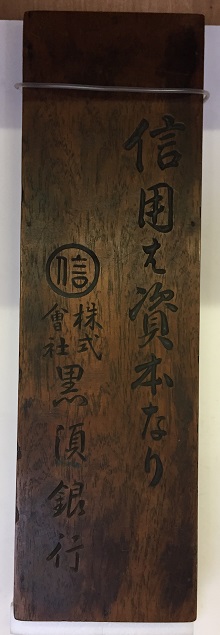 信用は資本なり
信
株式會社黒須銀行